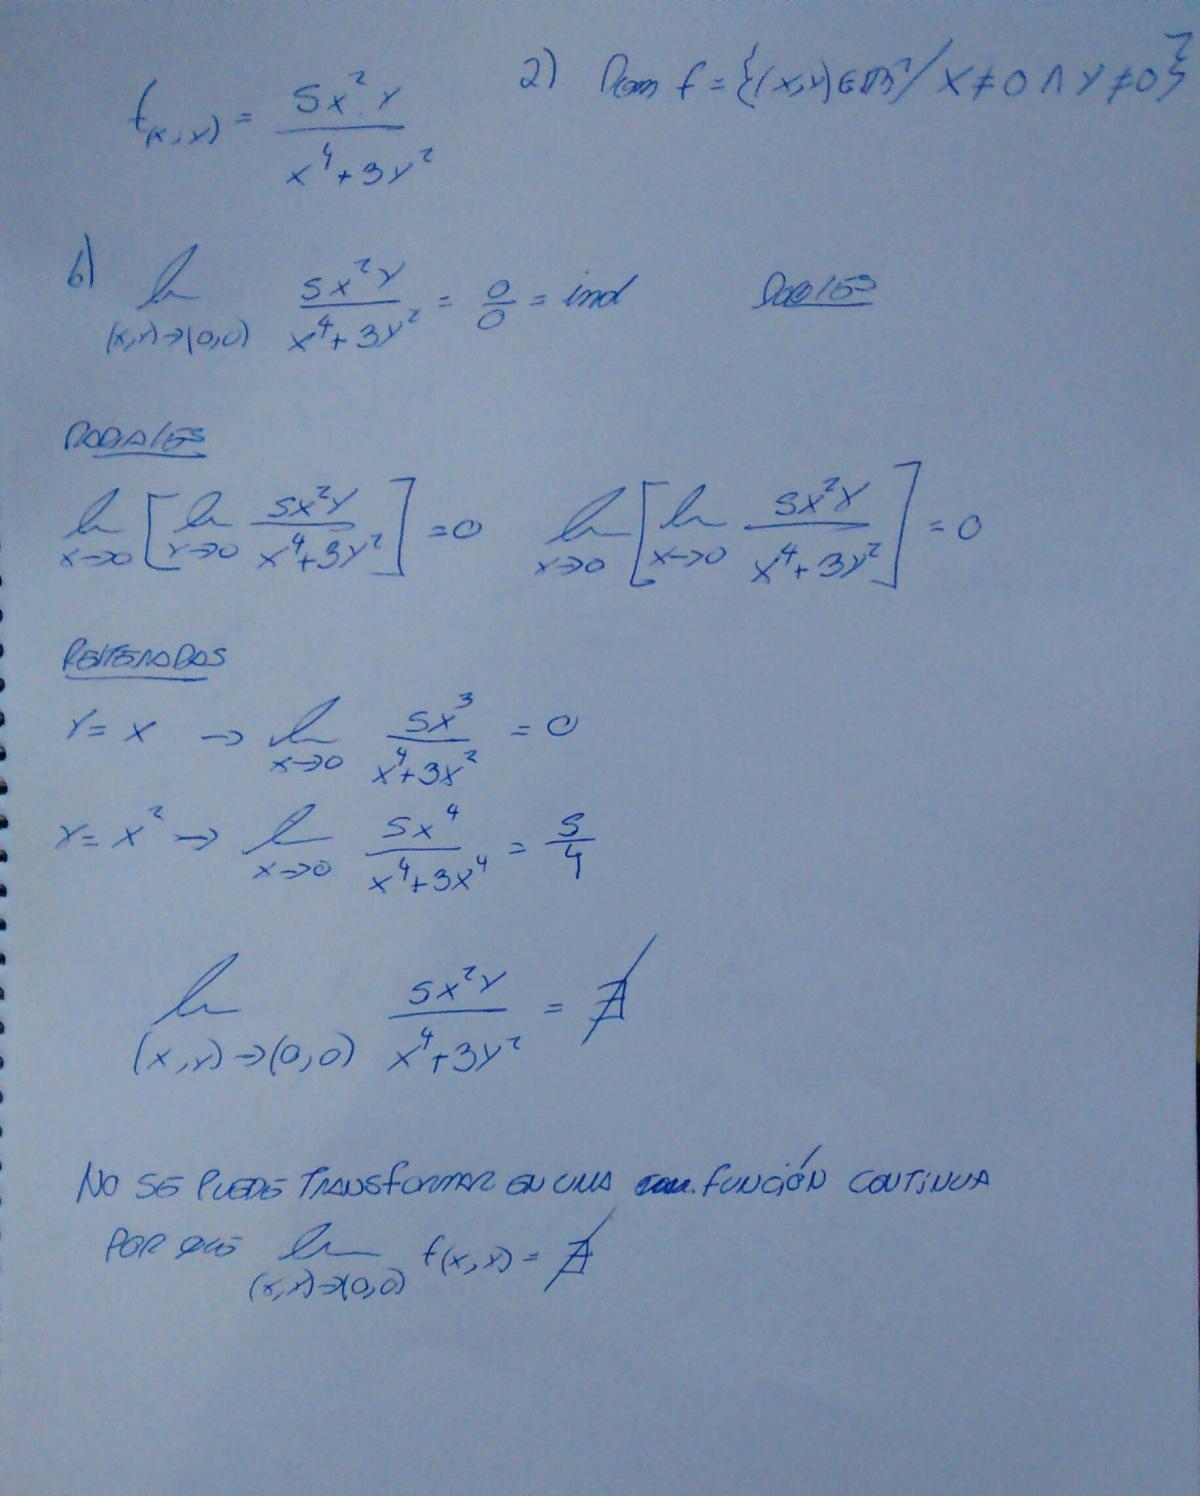 f(x,y) = 5x²y / x⁴+3y² a) Dom f = {(x,y)∈ℝ² / x≠0 ∧ y≠0}
b) lm (x,y)→(0,0) 5x²y / x⁴+3y² = 0/0 = ind DOBLES
RADIALES
lm x→0 [lm y→0 5x²y / x⁴+3y²] = 0 lm x→0 [lm x→0 5x²y / x⁴+3y²] = 0
REITERADOS
y = x → lm x→0 5x³ / x⁴+3x² = 0
y = x² → lm x→0 5x⁴ / x⁴+3x⁴ = 5/4
lm (x,y)→(0,0) 5x²y / x⁴+3y² = ∄
NO SE PUEDE TRANSFORMAR EN UNA FUNCIÓN CONTINUA
POR QUE lm (x,y)→(0,0) f(x,y) = ∄